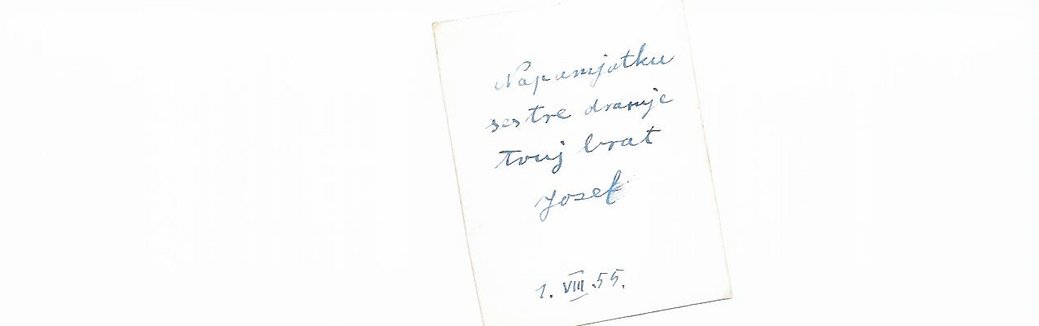 Napamjatku
sestre
tvuj brat
Josef
1. VIII. 55.